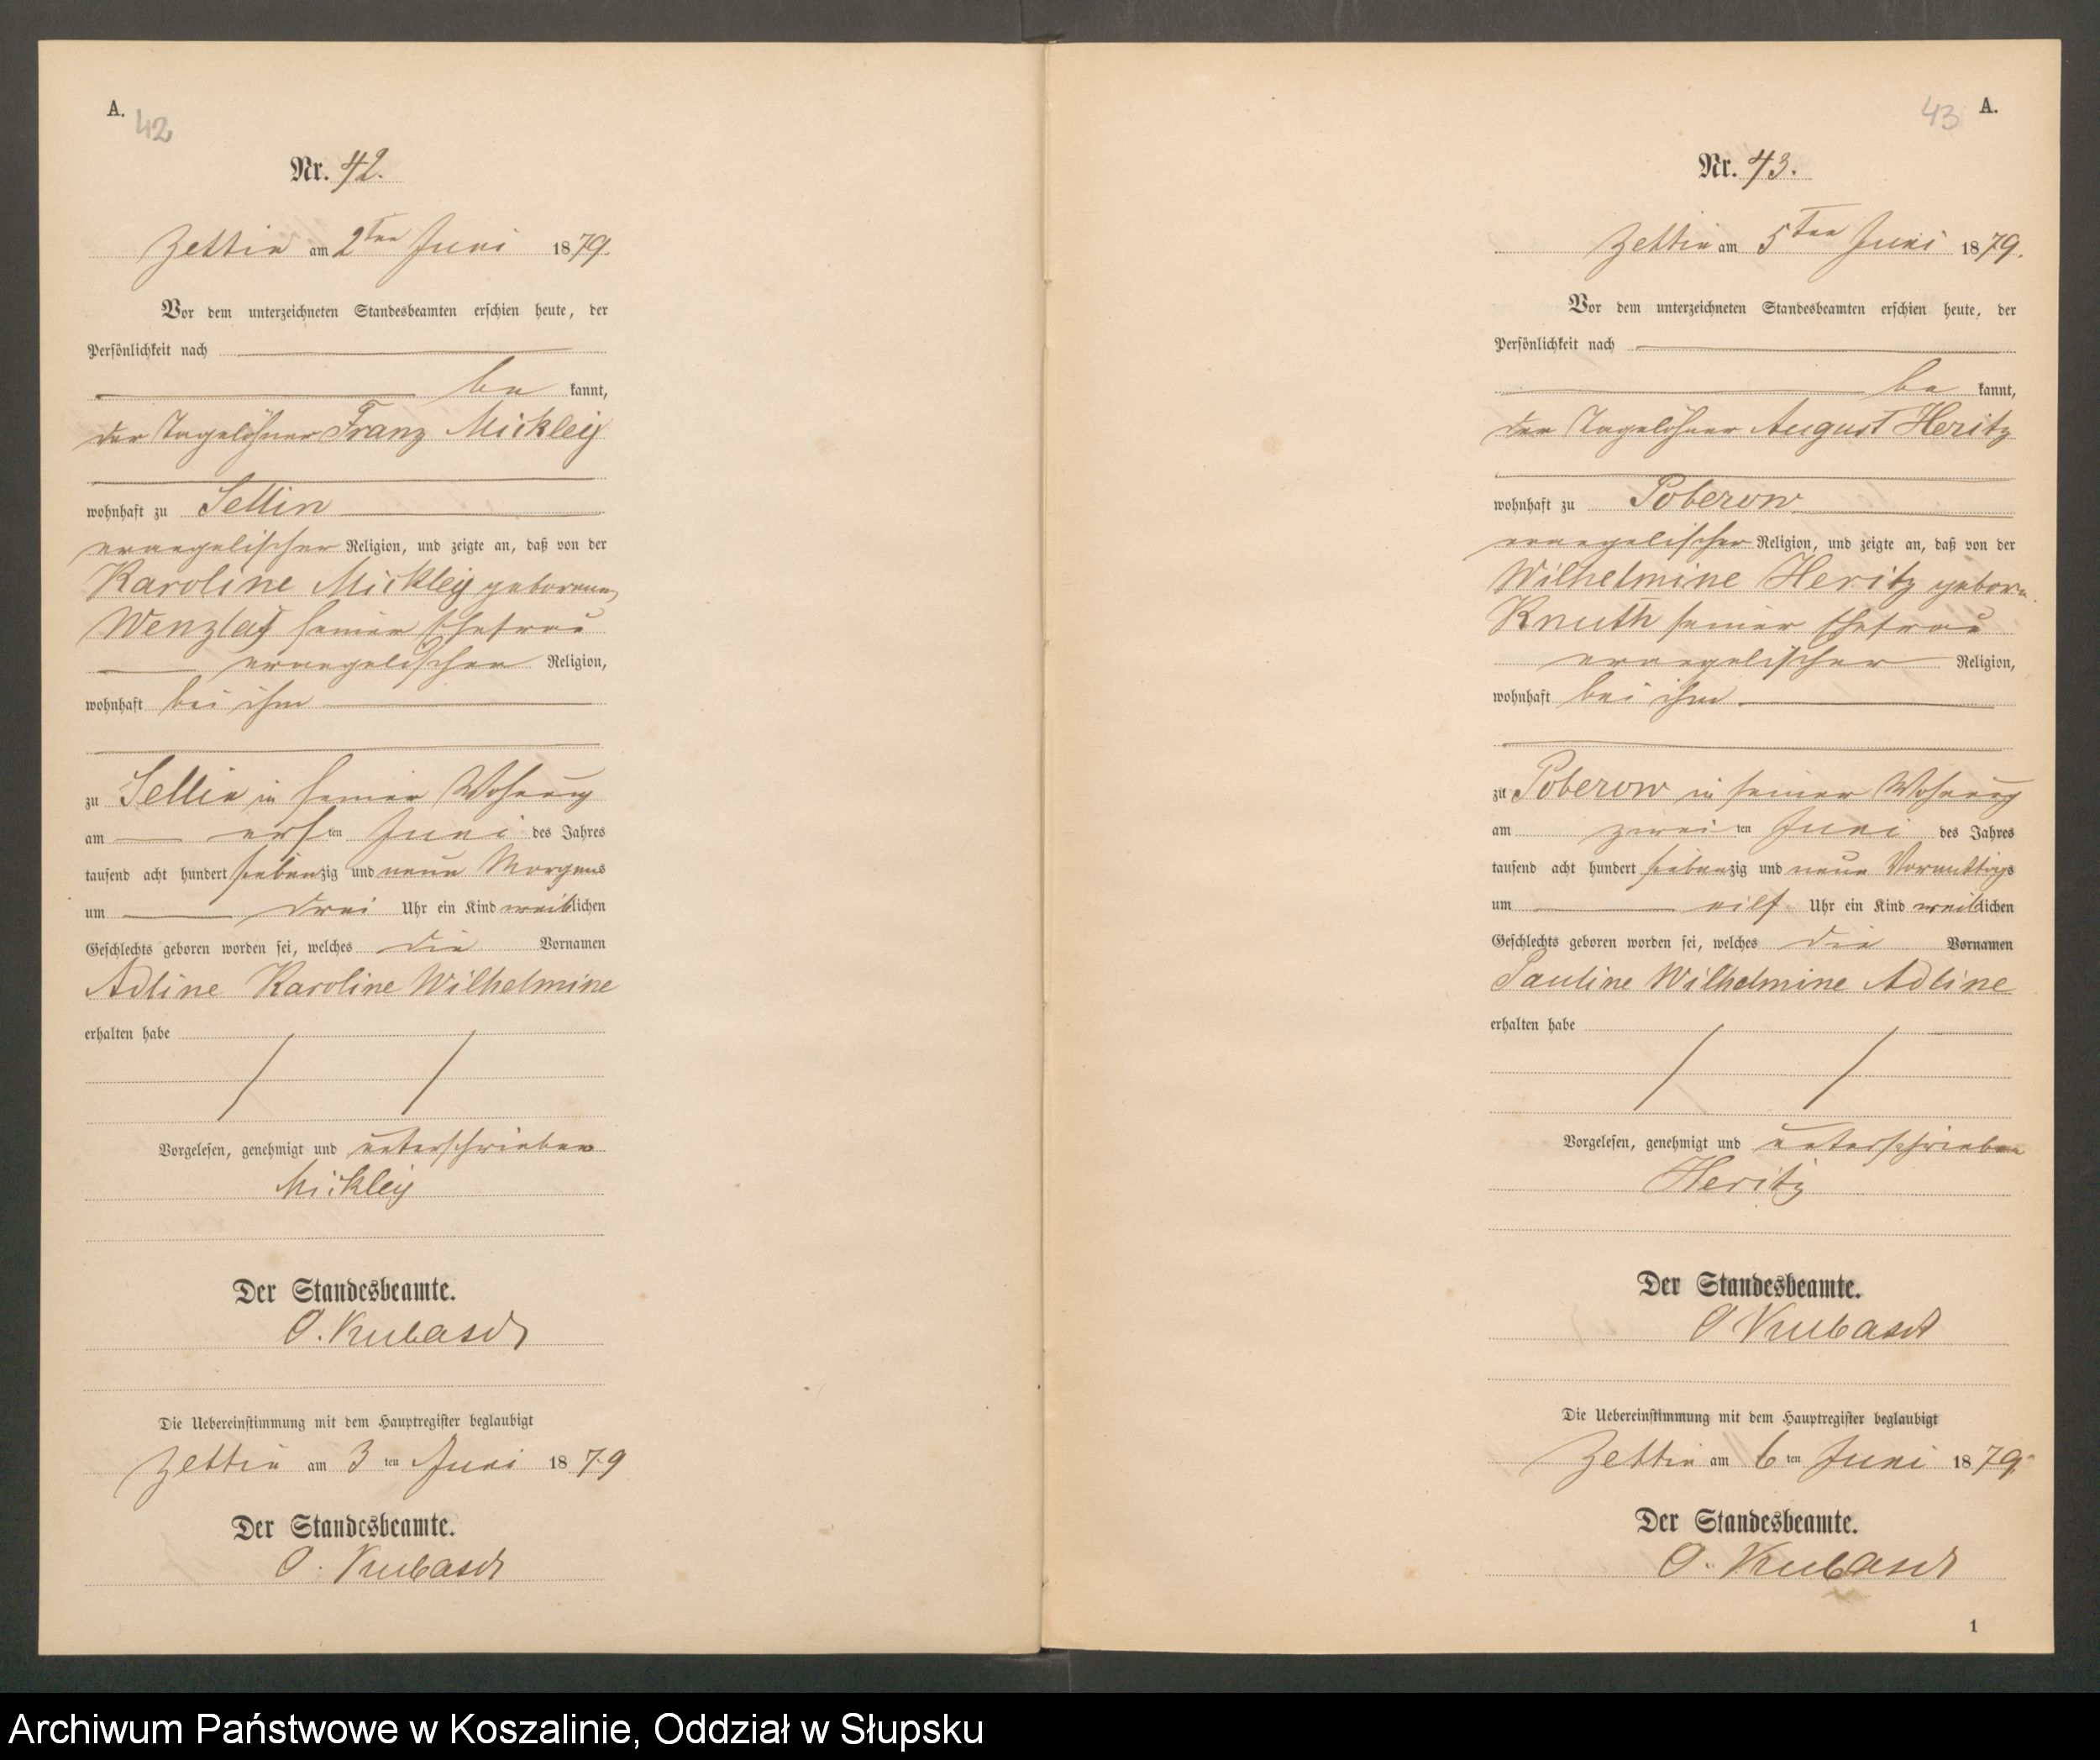 A.
42
Nr. 42.
Zettin am 2ten Juni 1879.
Vor dem unterzeichneten Standesbeamten erschien heute, der
Persönlichkeit nach
be kannt,
der Tagelöhner Franz Mickley
wohnhaft zu Sellin
evangelischer Religion, und zeigte an, daß von der
Karoline Mickley geborenen
Wenzlaf seiner Ehefrau
evangelischer Religion,
wohnhaft bei ihm
zu Sellin in seiner Wohnung
am ersten Juni des Jahres
tausend acht hundert siebenzig und neun Morgens
um drei Uhr ein Kind weiblichen
Geschlechts geboren worden sei, welches die Vornamen
Adline Karoline Wilhelmine
erhalten habe
Vorgelesen, genehmigt und unterschrieben
Mickley
Der Standesbeamte.
O. Kubasch
Die Uebereinstimmung mit dem Hauptregister beglaubigt
Zettin am 3ten Juni 1879
Der Standesbeamte.
O. Kubasch
43 A.
Nr. 43.
Zettin am 5ten Juni 1879.
Vor dem unterzeichneten Standesbeamten erschien heute, der
Persönlichkeit nach
be kannt,
der Tagelöhner August Heritz
wohnhaft zu Poberow
evangelischer Religion, und zeigte an, daß von der
Wilhelmine Heritz geborn.
Knuth seiner Ehefrau
evangelischer Religion,
wohnhaft bei ihm.
zu Poberow in seiner Wohnung
am zweiten Juni des Jahres
tausend acht hundert siebenzig und neun Vormittags
um eilf Uhr ein Kind weiblichen
Geschlechts geboren worden sei, welches die Vornamen
Pauline Wilhelmine Adline
erhalten habe
Vorgelesen, genehmigt und unterschrieben
Heritz
Der Standesbeamte.
O Kubasch
Die Uebereinstimmung mit dem Hauptregister beglaubigt
Zettin am 6ten Juni 1879.
Der Standesbeamte.
O. Kubasch
1
Archiwum Państwowe w Koszalinie, Oddział w Słupsku